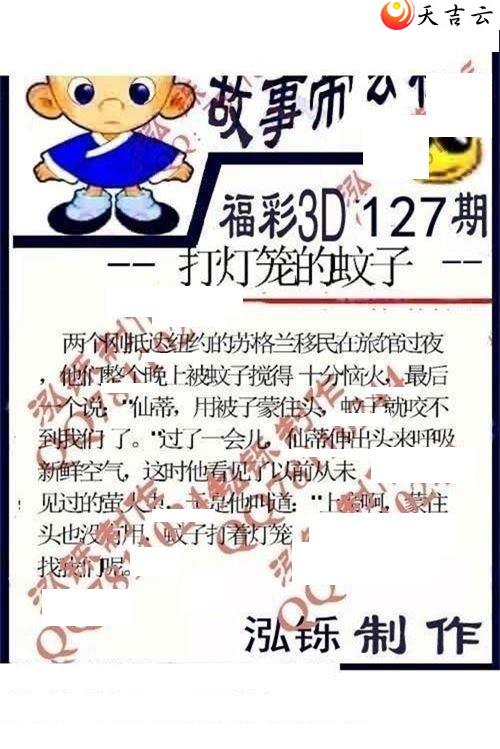 天吉云
故事师
福彩3D 127期
-- 打灯笼的蚊子 --
两个刚抵达纽约的苏格兰移民在旅馆过夜
，他们整个晚上被蚊子搅得 十分恼火，最后
一个说："仙蒂，用被子蒙住头，蚊子就咬不
到我们 了。"过了一会儿，仙蒂伸出头来呼吸
新鲜空气，这时他看见了以前从未
见过的萤火 于是他叫道："上帝啊，蒙住
头也没有用，蚊子打着灯笼
找我们呢。
泓铄 制 作